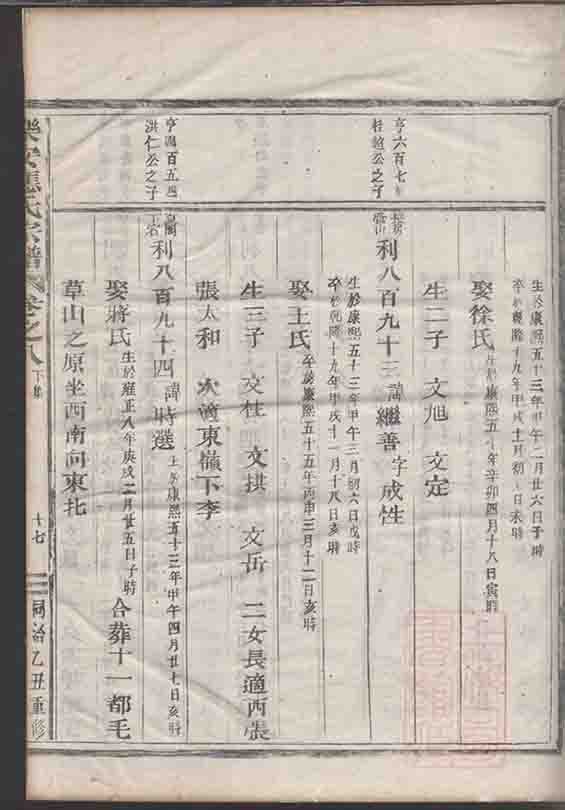 生於康熙五十三年甲午二月廿六日子時
卒於乾隆十九年甲戌十月初日亥時
娶徐氏生於康熙五十年辛卯四月十八日寅時
生二子 文旭 文定
亨六百七
桂超公之子
利八百九十三諱繼善字成性
生於康熙五十三年甲午三月初六日戌時
卒於乾隆十九年甲戌十一月十八日亥時
娶王氏生於康熙五十五年丙申三月十二日亥時
生三子 文桂 文拱 文岳 二女長適西張
張太和 次適東嶺下李
亨四百五四
洪仁公之子
利八百九十四諱時選生於康熙五十三年甲午四月廿七日亥時
娶蔣氏生於雍正八年庚戌二月廿五日子時 合葬十一都毛
草山之原坐西南向東北
樂安蔣氏宗譜 卷之八 下集 十七 同治乙丑重修